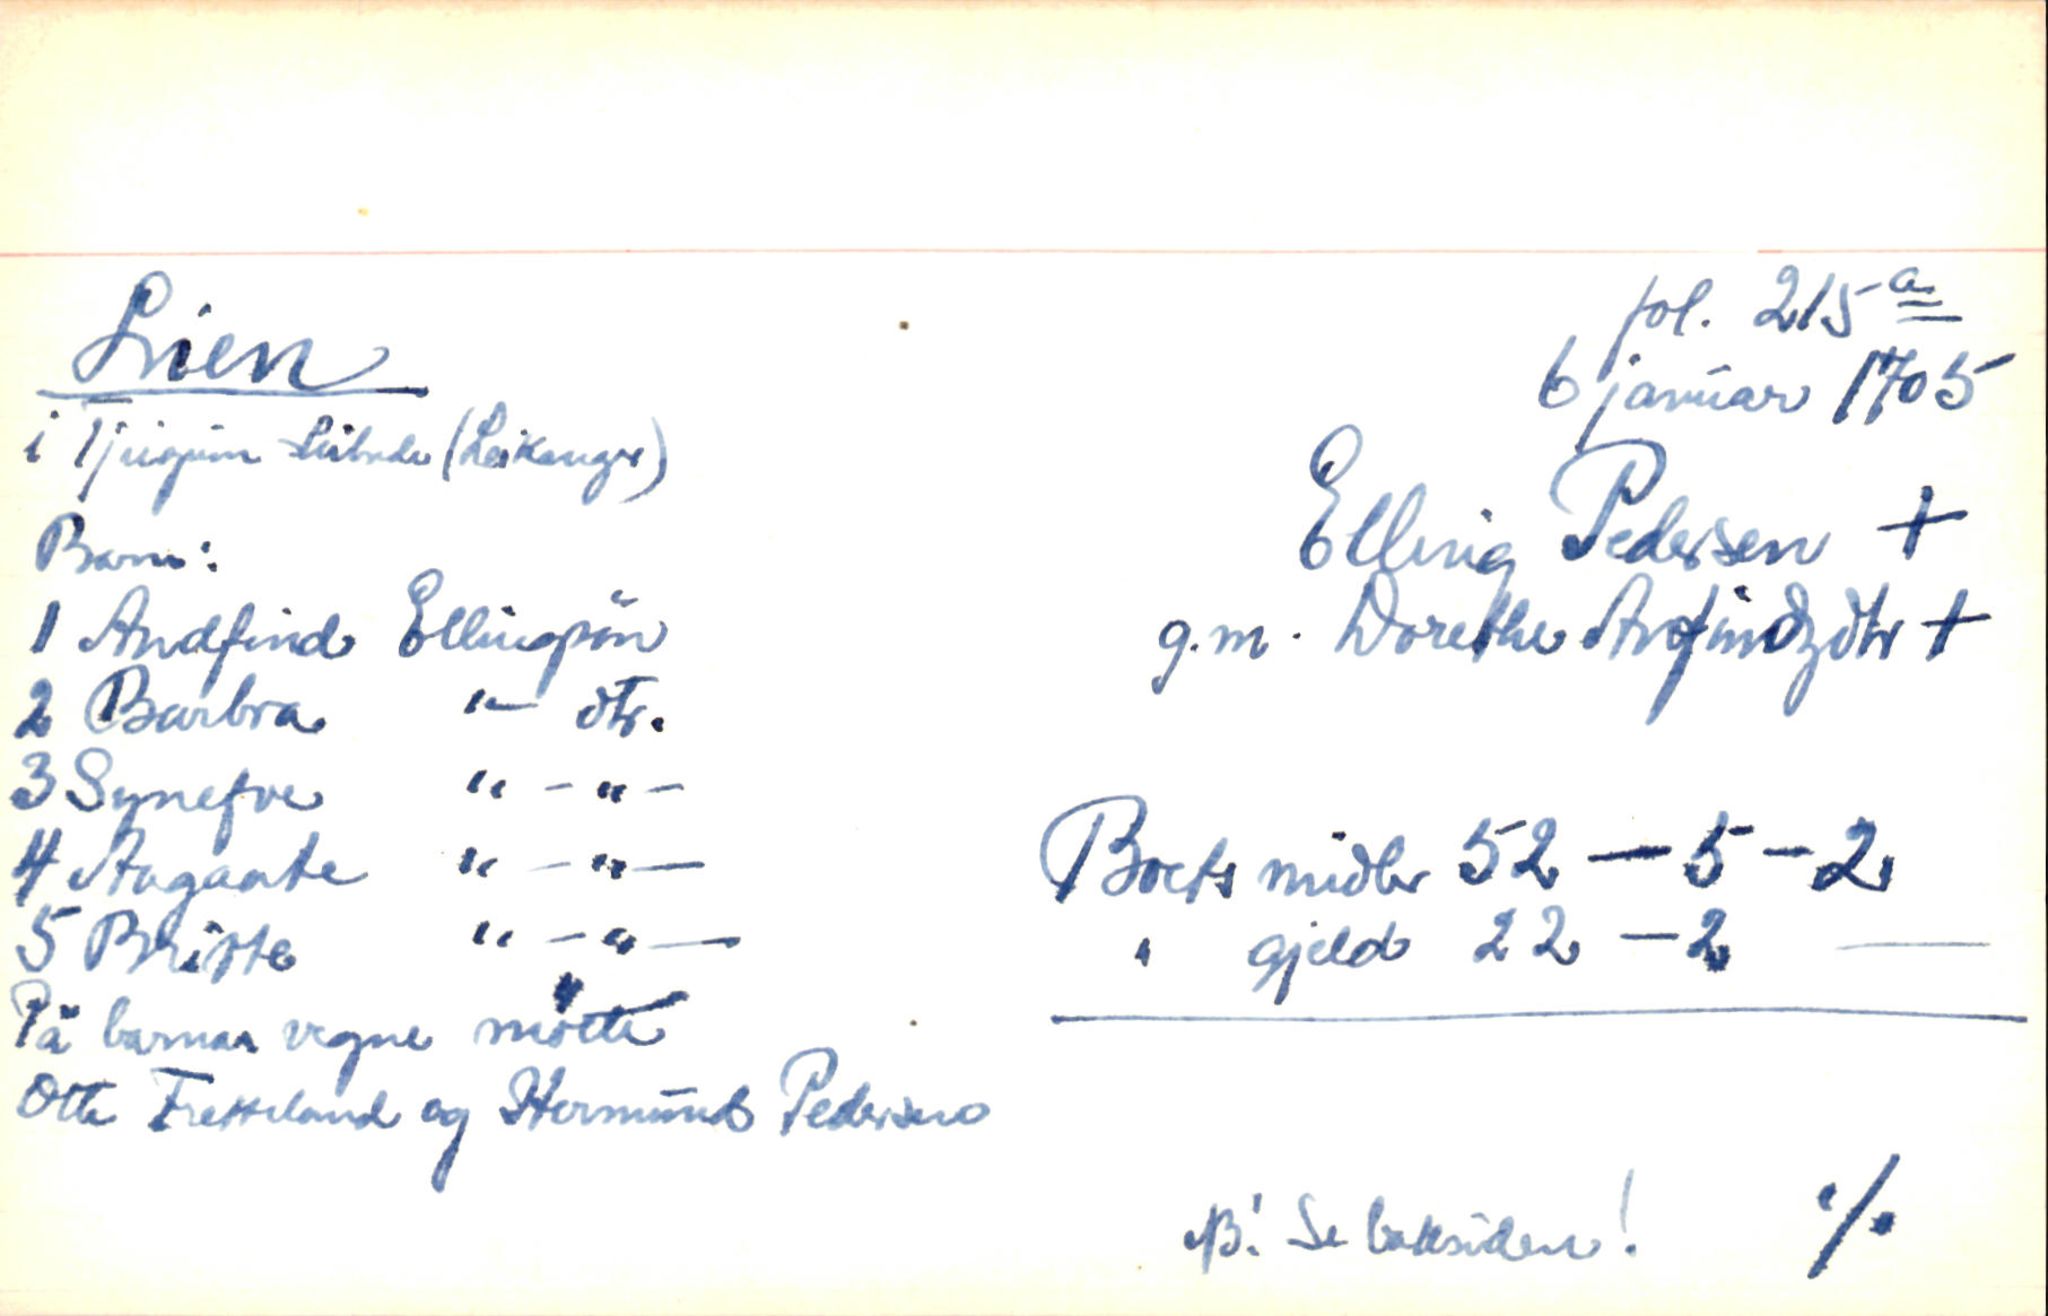 Lien
i Tjugum skibrede (Leikanger)
Barn:
1 Andfind Ellingsön
2 Barbra " dtr.
3 Synefve " - " -
4 Aagaate " - " -
5 Britte " - " -
På barnas vegne mötte
Otte Fretteland og Hermund Pedersen
fol. 215 a
6 januar 1705
Elling Pedersen +
g.m. Dorethe Anfindzdtr +
Boets midler 52 - 5 - 2
" gjeld 22 - 2 -
NB! Se baksiden! ./.